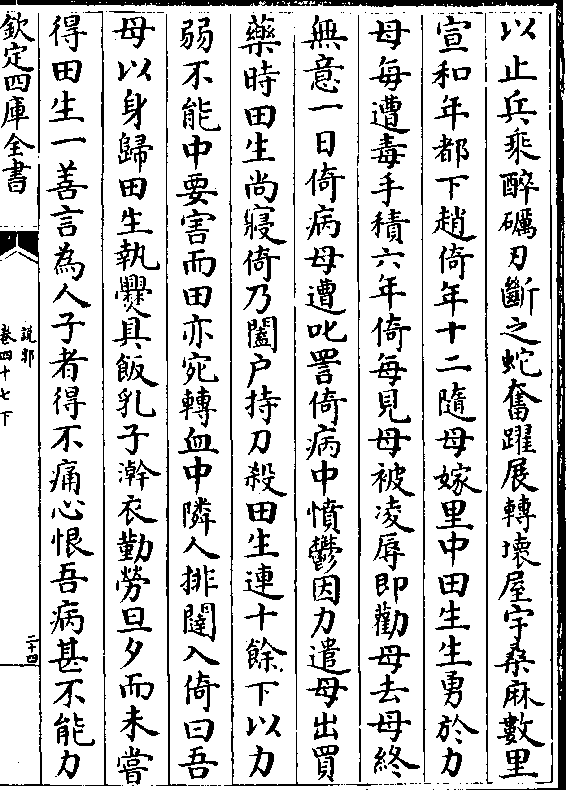 以止兵乘醉礪刃斷之蛇奮躍展轉壊屋宇桑麻數里
宣和年都下趙倚年十二隨母嫁里中田生生勇於力
母每遭毒手積六年倚每見母被凌辱即勸母去母終
無意一日倚病母遭叱詈倚病中憤鬱因力遣母出買
藥時田生尚寢倚乃闔户持刀殺田生連十餘下以力
弱不能中要害而田亦宛轉血中隣人排闥入倚曰吾
母以身歸田生執爨具飯乳子澣衣勤勞旦夕而未嘗
得田生一善言為人子者得不痛心恨吾病甚不能力
欽定四庫全書
說郛
卷四十七下
二十四